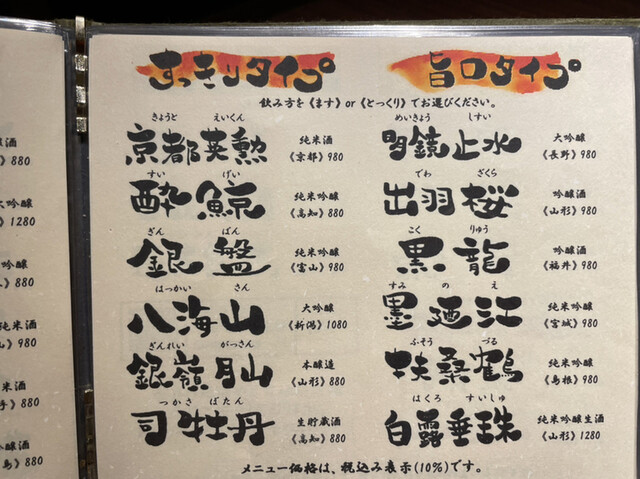 すっきりタイプ
旨口タイプ
飲み方を《ます》or《とっくり》でお選びください。
きょうと えいくん
京都英勲
純米酒
《京都》980
すい げい
酔鯨
純米吟醸
《高知》880
ぎん ばん
銀盤
純米吟醸
《富山》980
はっかい さん
八海山
大吟醸
《新潟》1080
ぎんれい がっさん
銀嶺月山
本醸造
《山形》880
つかさ ぼたん
司牡丹
生貯蔵酒
《高知》880
めいきょう しすい
明鏡止水
大吟醸
《長野》980
でわ ざくら
出羽桜
吟醸酒
《山形》980
こく りゅう
黒龍
吟醸酒
《福井》980
すみ の え
墨廼江
純米吟醸
《宮城》980
ふそう づる
扶桑鶴
純米吟醸
《島根》980
はくろ すいしゅ
白露垂珠
純米吟醸生酒
《山形》1280
メニュー価格は、税込み表示(10%)です。
酒
》880
大吟醸
》1280
吟醸
》980
純米酒
》980
米酒
》880
吟醸
》880